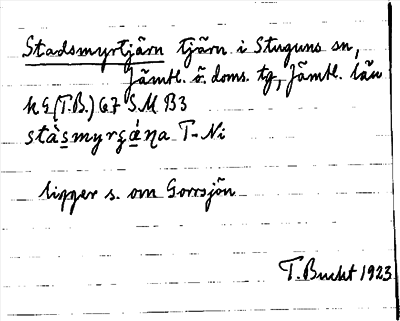 Stadsmyrtjärn tjärn i Stuguns sn,
Jämtl. ö. doms. tg, Jämtl. län
(T.B.) 67 S M B3
T-Ni
ligger s. om Gorrsjön
T. Bucht 1923